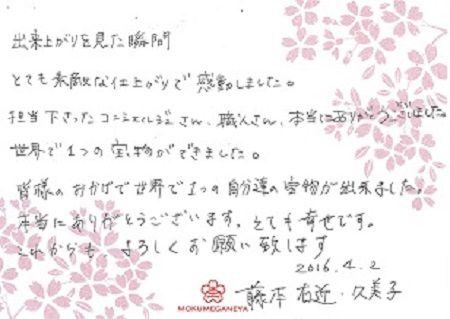 出来上がりを見た瞬間
とても素敵な仕上がりで感動しました。
担当下さった さん、職人さん、本当にありがとうございました。
世界で1つの宝物ができました。
皆様のおかげで世界で1つの自分達の宝物が出来ました。
本当にありがとうございます。とても幸せです。
これからも、よろしくお願い致します
2016.4.2
藤本 右近・久美子
MOKUMEGANEYA